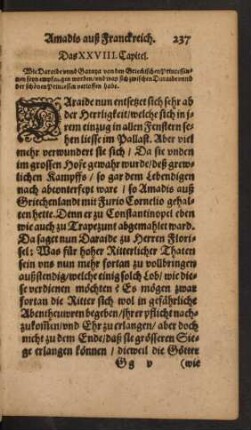 Amadis auß Franckreich. 237
Das XXVIII. Capitel.
Wie Daraide vnnd Garaya von den Griechischen Princessin-
nen seyn empfangen worden/ vnd was sich zwischen Daraide vnnd
der schönen Princessen verlossen habe.
DAraide nun entsetzet sich sehr ab
der Herrligkeit/welche sich in j-
rem einzug in allen Fenstern se-
hen liesse im Pallast. Aber viel
mehr verwundert sie sich / Da sie vnden
im grossen Hofe gewahr wurde/ deß grew-
lichen Kampffs / so gar dem Lebendigen
nach abconterfeyt ware / so Amadis auß
Griechenlandt mit Furio Cornelio gehal-
ten hette. Denn er zu Constantinopel eben
wie auch zu Trapezunt abgemahlet ward.
Da saget nun Daraide zu Herren Flori-
sel: Was für hoher Ritterlicher Thaten
sein vns nun mehr fortan zu vollbringen
außstendig/welche einig solch Lob/ wie die-
se verdienen möchten? Es mögen zwar
fortan die Ritter sich wol in gefährliche
Abentheuwren begeben/ jhrer pflicht nach-
zukommen/vnd Ehr zu erlangen/ aber doch
nicht zu dem Ende/daß sie grösseren Sie-
ge erlangen können / dieweil die Götter
Gg v (wie